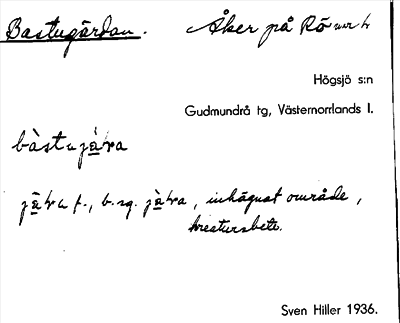 Bastugärdan. Åker på Rö
Högsjö s:n
Gudmundrå tg, Västernorrlands l.
bàstujä̀ra
jä̀ra f., b. sg. jä̀ra, inhägnat område,
kreatursbete.
Sven Hiller 1936.